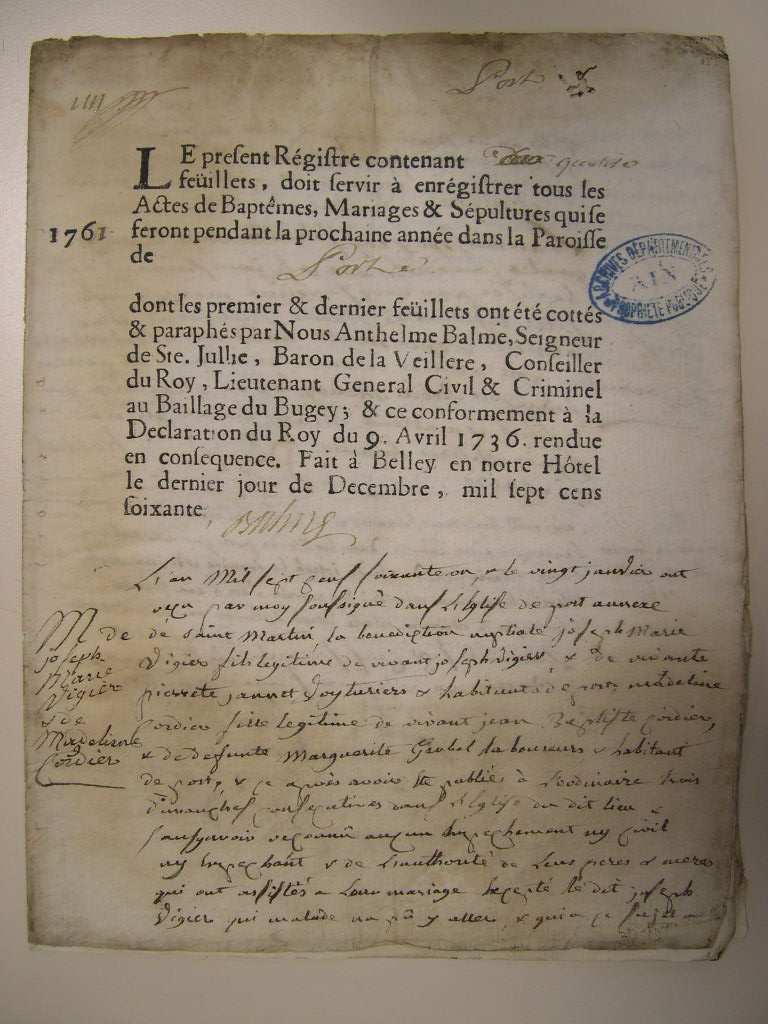 Port
LE present Régistre contenant quatre
feüillets, doit servir à enrégistrer tous les
Actes de Baptêmes, Mariages & Sépultures qui se
1761 feront pendant la prochaine année dans la Paroisse
de Port
ARCHIVES DÉPARTEMENTALES
AIN
PROPRIÉTÉ PUBLIQUE
dont les premier & dernier feüillets ont été cottés
& paraphés par Nous Anthelme Balme, Seigneur
de Ste. Jullie, Baron de la Veillere, Conseiller
du Roy, Lieutenant General Civil & Criminel
au Baillage du Bugey; & ce conformement à la
Declaration du Roy du 9. Avril 1736. rendue
en consequence. Fait à Belley en notre Hôtel
le dernier jour de Decembre, mil sept cens
soixante,
Balme
M de
joseph
Marie
Vigier
& de
Madelienne
Cordier
L'an Mil sept cens soixante un, & le vingt janvier ont
reçu par moy soussigné dans L'Eglise de port annexe
de saint Martin, la benediction nuptiale joseph Marie
Vigier fils legitime de vivant joseph Vigier, & de vivante
pierrete jannet Voyturiers & habitants de port, Madeleine
Cordier fille legitime de vivant jean Baptiste Cordier,
& de defunte Marguerite laboureurs & habitant
de port, & ce après avoir été publiés à L'ordinaire trois
dimanches consecutives dans L'Eglise du dit lieu
sans avoir reconnû aucun Empechement ny civil
ny & de L'authorité de Leurs peres & meres
qui ont assistés a Leur mariage Excepté le dit joseph
Vigier qui malade na pû y aller, &